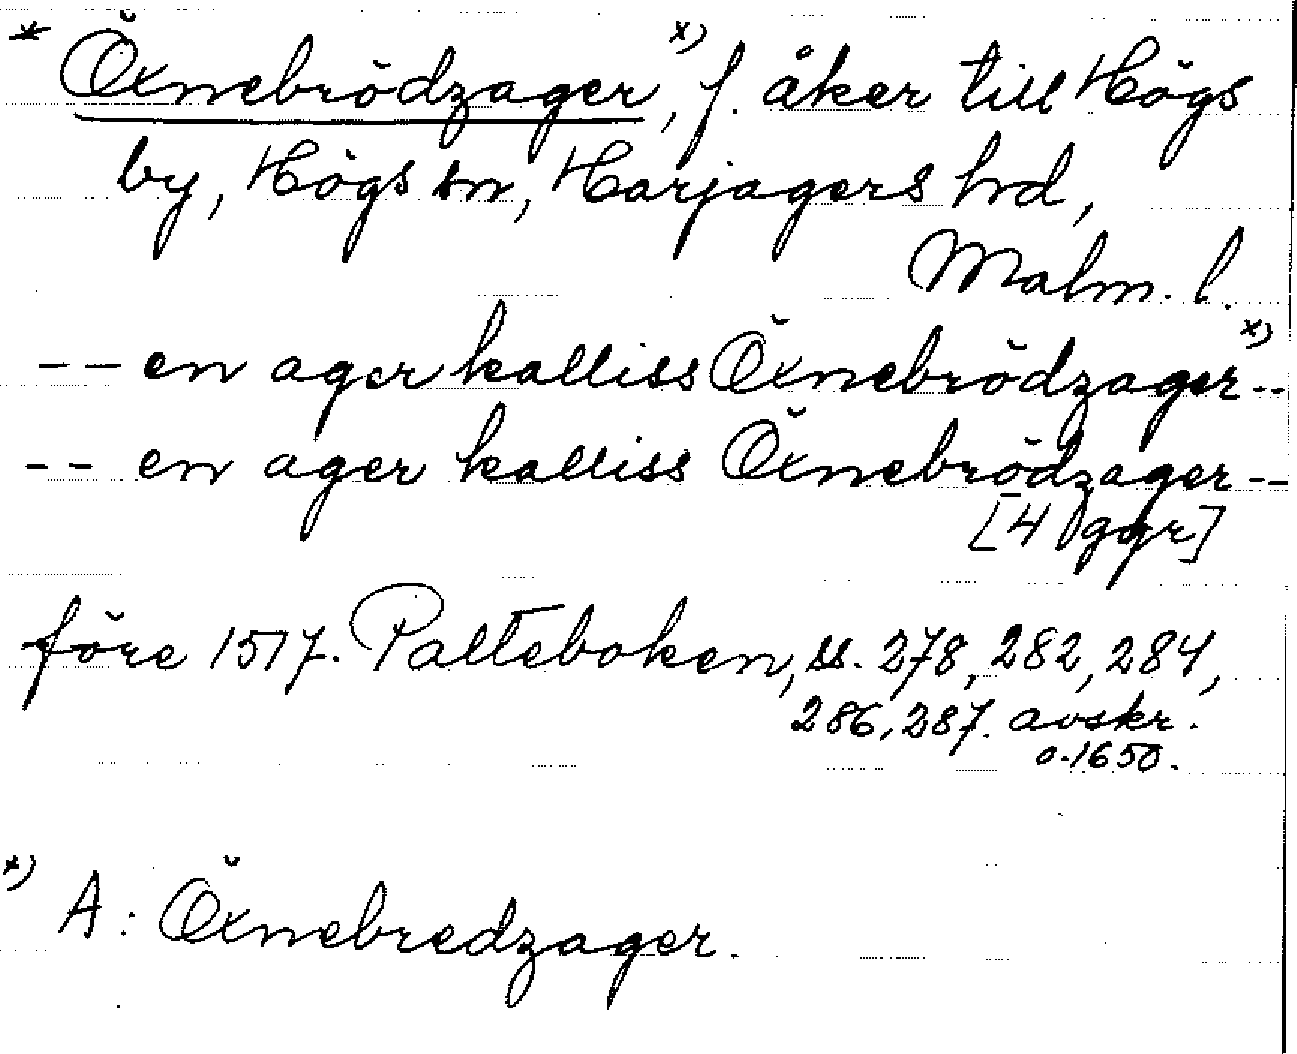 * Öxnebrödzager, x) f. åker till Högs
by, Högs sn, Harjagers hd,
Malm. l.
-- en ager kalliss Öxnebrödzager x) --
-- en ager kalliss Öxnebrödzager --
[4 ggr]
före 1517. Palteboken, ss. 278, 282, 284,
286, 287. avskr.
o. 1650.
x) A: Öxnebredzager.